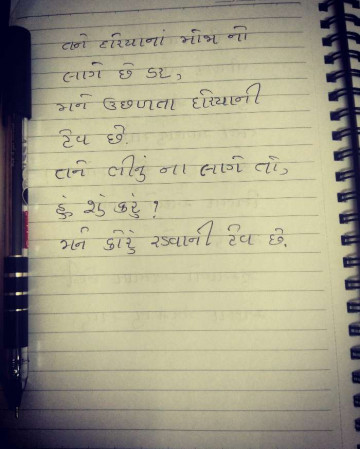 તને દરિયાનાં મોજા નો
લાગે છે ડર,
મને ઉછળતા દરિયાની
ટેવ છે.
તને ભીનું ના લાગે તો,
હું શું કરું?
મને કોરું રડવાની ટેવ છે.